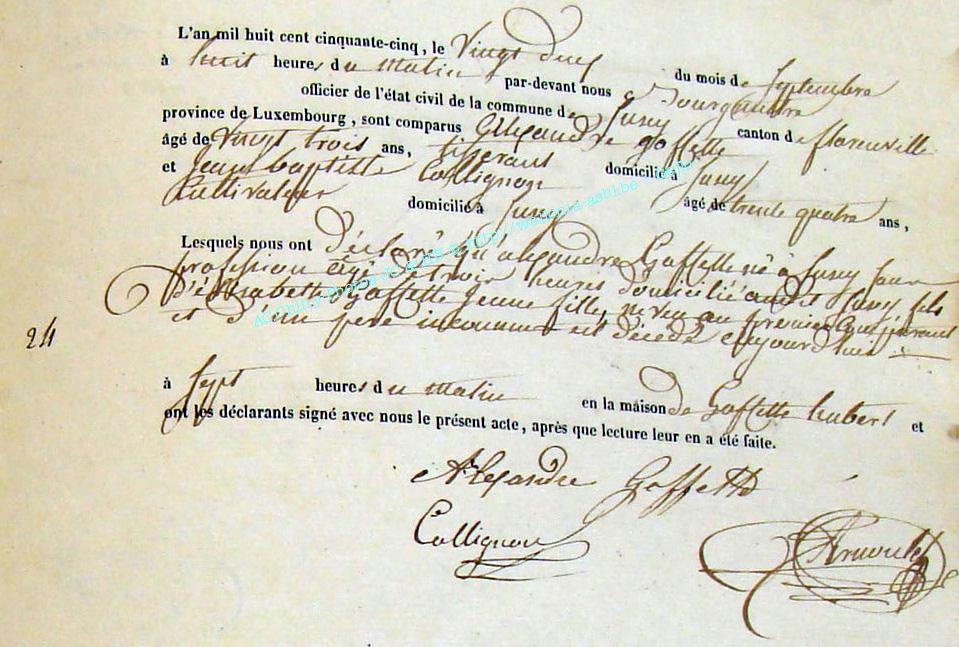 L'an mil huit cent cinquante-cinq, le Vingt deux du mois de Septembre
à huit heures du matin par-devant nous Bourgmestre
officier de l'état civil de la commune de Suxy canton de florenville
province de Luxembourg, sont comparus Alexandre goffette
âgé de Vingt trois ans, tisserant domicilié à Suxy
et Jean baptiste Collignon âgé de trente quatre ans,
Cultivateur domicilié à Suxy
Lesquels nous ont déclaré qu'alexandre Goffette né à Suxy sans
profession âgé de trois heures domicilié audit Suxy, fils
d'élisabeth Goffette jeune fille, neveu au premier Comparant
et d'un père inconnu est décédé aujourd'hui
24
à Sept heures du matin en la maison de Goffette hubert et
ont les déclarants signé avec nous le présent acte, après que lecture leur en a été faite.
Alexandre Goffette
Collignon